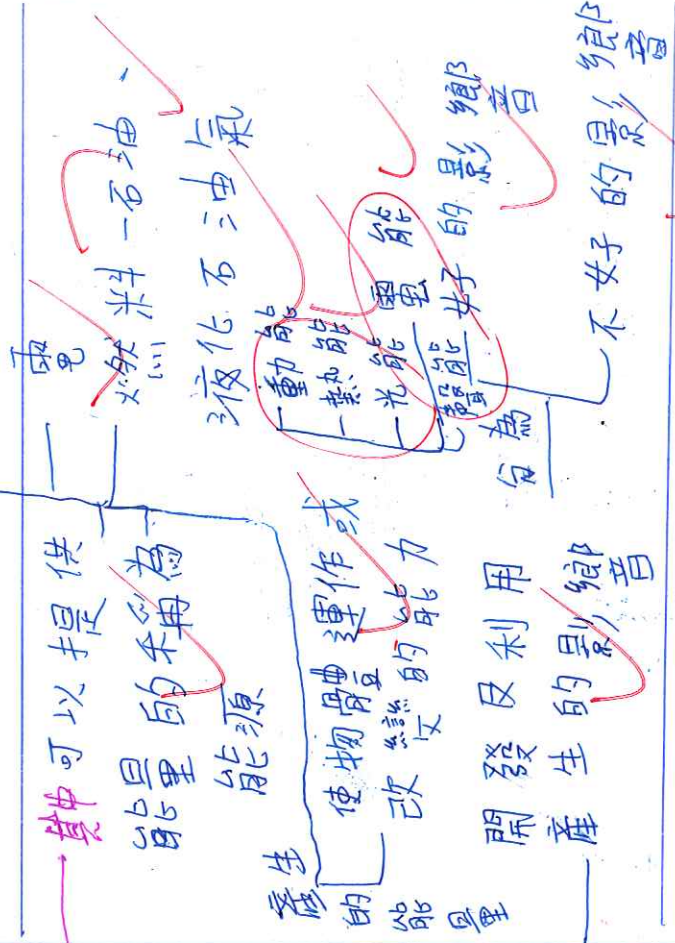 可以提供
能量的稱為
能源
電
燃料—石油、
液化石油氣
產生
的能量
使物體運作或
改變的能力
動能
熱能
光能
電能
聲能
開發及利用
產生的影響
分為
好的影響
不好的影響